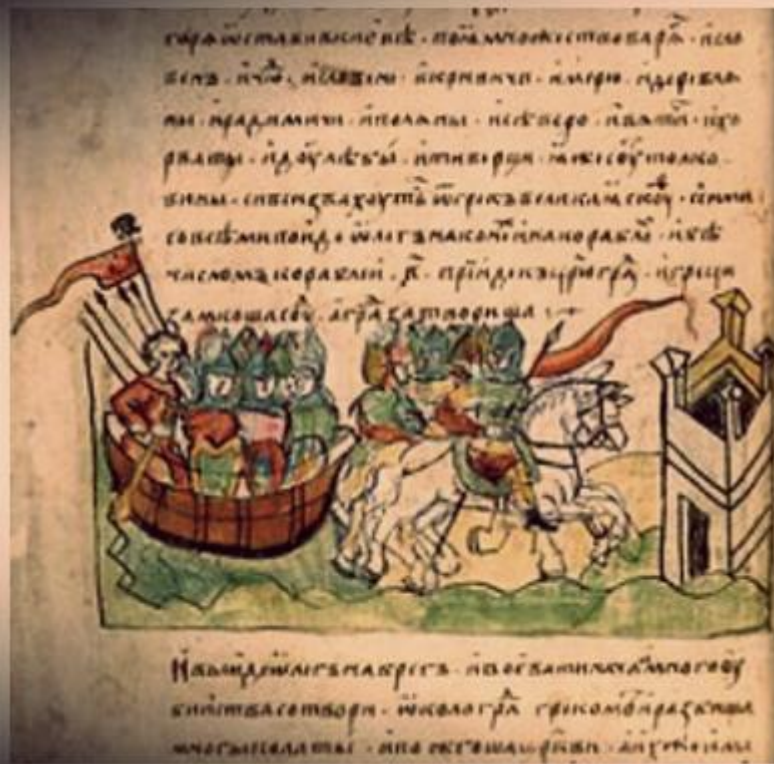 горѧ ѡставивкиевѣ · поꙗ множество варѧ · и сло
венъ · и чю · и словени · и кривичи · и мерю · и деревлѧ
ны · и радимичи · и полѧны · и сѣверо · и вѧтич · и хо
рваты · и доулѣбы · и тиверци · ꙗже соу толко
вины · си вси звахоуть ѿ грекъ великаꙗ скоу · с сими
со всѣми поиде ѡлегъ на кон и на кораблѧ · и бѣ
числомъ кораблеи · в҃ · прїиде къ цр҃югра · и греци
замкоша соу · а гра затвориша ·
И выиде ѡлегъ на брегъ · и воевати нача много оу
бииства сотвори · ѡколо гра грекомъ и разбиша
многы полаты · и пожегоша црк҃ви · а ихже има